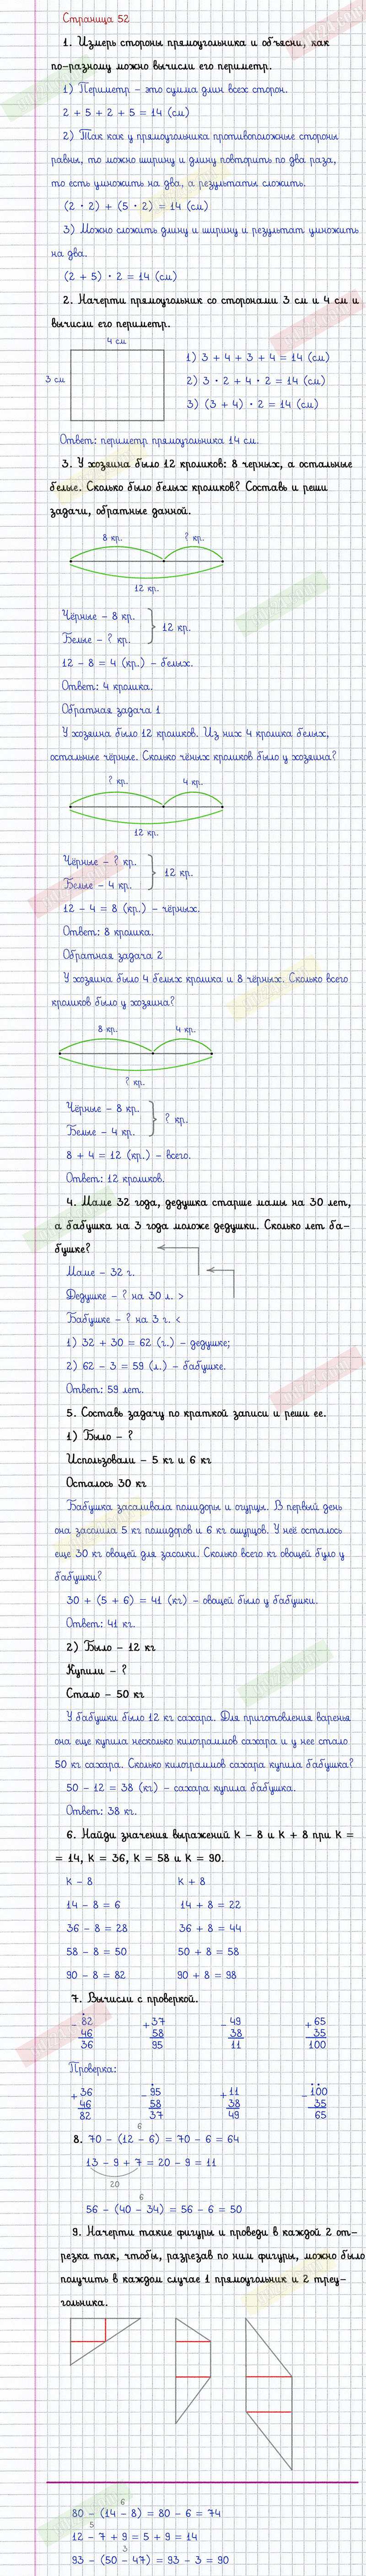 Страница 52
1. Измерь стороны прямоугольника и объясни, как
по-разному можно вычисли его периметр.
1) Периметр – это сумма длин всех сторон.
2 + 5 + 2 + 5 = 14 (см)
2) Так как у прямоугольника противоположные стороны
равны, то можно ширину и длину повторить по два раза,
то есть умножить на два, а результаты сложить.
(2 · 2) + (5 · 2) = 14 (см)
3) Можно сложить длину и ширину и результат умножить
на два.
(2 + 5) · 2 = 14 (см)
2. Начерти прямоугольник со сторонами 3 см и 4 см и
вычисли его периметр.
4 см
3 см
1) 3 + 4 + 3 + 4 = 14 (см)
2) 3 · 2 + 4 · 2 = 14 (см)
3) (3 + 4) · 2 = 14 (см)
Ответ: периметр прямоугольника 14 см.
3. У хозяина было 12 кроликов: 8 черных, а остальные
белые. Сколько было белых кроликов? Составь и реши
задачи, обратные данной.
8 кр. ? кр.
12 кр.
Чёрные – 8 кр.
12 кр.
Белые – ? кр.
12 – 8 = 4 (кр.) – белых.
Ответ: 4 кролика.
Обратная задача 1
У хозяина было 12 кроликов. Из них 4 кролика белых,
остальные чёрные. Сколько чёных кроликов было у хозяина?
? кр. 4 кр.
12 кр.
Чёрные – ? кр.
12 кр.
Белые – 4 кр.
12 – 4 = 8 (кр.) – чёрных.
Ответ: 8 кролика.
Обратная задача 2
У хозяина было 4 белых кролика и 8 чёрных. Сколько всего
кроликов было у хозяина?
8 кр. 4 кр.
? кр.
Чёрные – 8 кр.
? кр.
Белые – 4 кр.
8 + 4 = 12 (кр.) – всего.
Ответ: 12 кроликов.
4. Маме 32 года, дедушка старше мамы на 30 лет,
а бабушка на 3 года моложе дедушки. Сколько лет ба-
бушке?
Маме – 32 г.
Дедушке – ? на 30 л. >
Бабушке – ? на 3 г. <
1) 32 + 30 = 62 (г.) – дедушке;
2) 62 – 3 = 59 (л.) – бабушке.
Ответ: 59 лет.
5. Составь задачу по краткой записи и реши ее.
1) Было – ?
Использовали – 5 кг и 6 кг
Осталось 30 кг
Бабушка засаливала помидоры и огурцы. В первый день
она засолила 5 кг помидоров и 6 кг ошурцов. У неё осталось
еще 30 кг овощей для засолки. Сколько всего кг овощей було у
бабушки?
30 + (5 + 6) = 41 (кг) – овощей было у бабушки.
Ответ: 41 кг.
2) Было – 12 кг
Купили – ?
Стало – 50 кг
У бабушки было 12 кг сахара. Для приготовления варенья
она еще купила несколько килограммов сахара и у нее стало
50 кг сахара. Сколько килограммов сахара купила бабушка?
50 – 12 = 38 (кг) – сахара купила бабушка.
Ответ: 38 кг.
6. Найди значения выражений k – 8 и k + 8 при k =
= 14, k = 36, k = 58 и k = 90.
k – 8 k + 8
14 – 8 = 6 14 + 8 = 22
36 – 8 = 28 36 + 8 = 44
58 – 8 = 50 50 + 8 = 58
90 – 8 = 82 90 + 8 = 98
7. Вычисли с проверкой.
– 82 + 37 – 49 + 65
46 58 38 35
36 95 11 100
Проверка:
+ 36 – 95 + 11 – 100
46 58 38 35
82 37 49 65
6
8. 70 – (12 – 6) = 70 – 6 = 64
13 – 9 + 7 = 20 – 9 = 11
20
6
56 – (40 – 34) = 56 – 6 = 50
9. Начерти такие фигуры и проведи в каждой 2 от-
резка так, чтобы, разрезав по ним фигуры, можно было
получить в каждом случае 1 прямоугольник и 2 треу-
гольника.
6
80 – (14 – 8) = 80 – 6 = 74
5
12 – 7 + 9 = 5 + 9 = 14
3
93 – (50 – 47) = 93 – 3 = 90